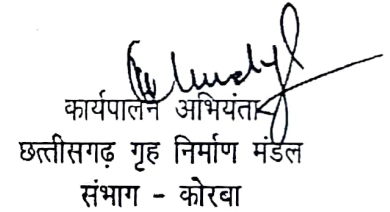 कार्यपालन अभियंता
छत्तीसगढ़ गृह निर्माण मंडल
संभाग - कोरबा